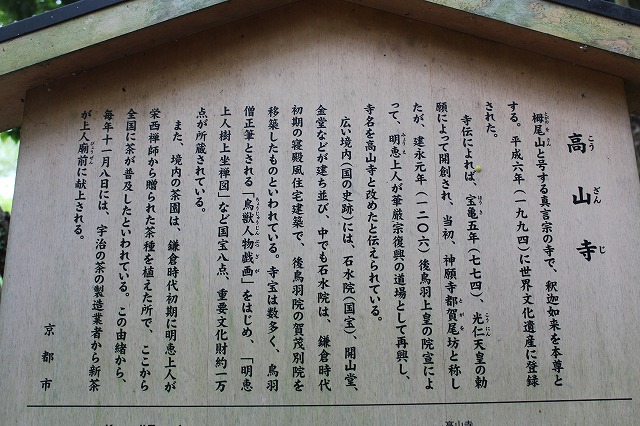 高山寺
こうざんじ
栂尾山と号する真言宗の寺で、釈迦如来を本尊と
する。平成六年(一九九四)に世界文化遺産に登録
された。
寺伝によれば、宝亀五年(七七四)、光仁天皇の勅
願によって開創され、当初、神願寺都賀尾坊と称し
たが、建永元年(一二〇六)後鳥羽上皇の院宣によ
って、明恵上人が華厳宗復興の道場として再興し、
寺名を高山寺と改めたと伝えられている。
広い境内(国の史跡)には、石水院(国宝)、開山堂、
金堂などが建ち並び、中でも石水院は、鎌倉時代
初期の寝殿風住宅建築で、後鳥羽院の賀茂別院を
移築したものといわれている。寺宝は数多く、鳥羽
僧正筆とされる「鳥獣人物戯画」をはじめ、「明恵
上人樹上坐禅図」など国宝八点、重要文化財約一万
点が所蔵されている。
また、境内の茶園は、鎌倉時代初期に明恵上人が
栄西禅師から贈られた茶種を植えた所で、ここから
全国に茶が普及したといわれている。この由緒から、
毎年十一月八日には、宇治の茶の製造業者から新茶
が上人廟前に献上される。
京都市
高山寺